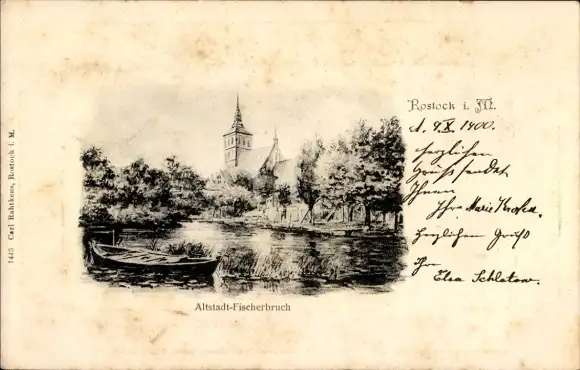 Rostock i. M.
d. 9/X. 1900.
Herzlichen
Gruss sendet
Ihnen
Ihre Marie
Herzlichen Gruß
Ihre
Elsa Schlatow.
Altstadt-Fischerbruch
1443 Carl Rahtkens, Rostock i. M.